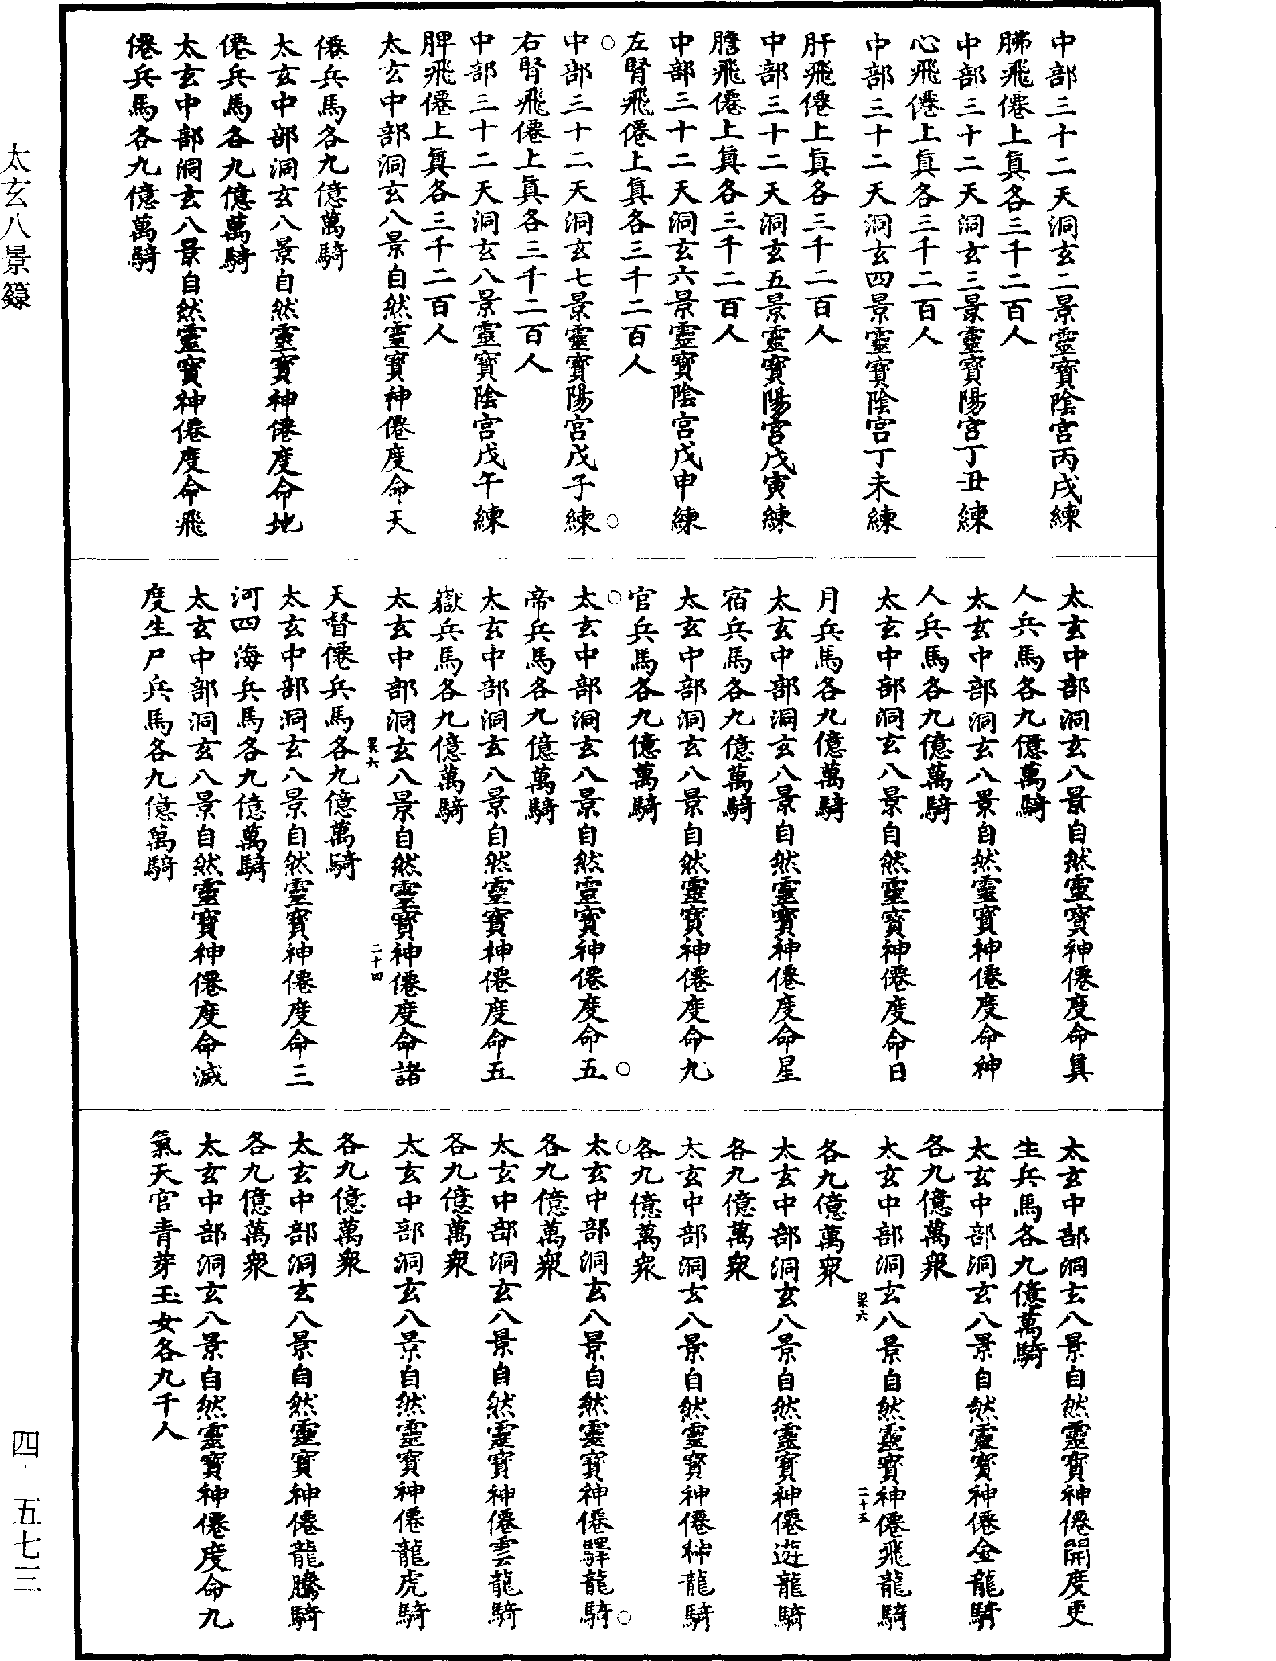 中部三十二天洞玄二景靈寶陰宮丙戌練
胏飛僊上真各三千二百人
中部三十二天洞玄三景靈寶陽宮丁丑練
心飛僊上真各三千二百人
中部三十二天洞玄四景靈寶陰宮丁未練
肝飛僊上真各三千二百人
中部三十二天洞玄五景靈寶陽宮戊寅練
膽飛僊上真各三千二百人
中部三十二天洞玄六景靈寶陰宮戊申練
左腎飛僊上真各三千二百人
中部三十二天洞玄七景靈寶陽宮戊子練
右腎飛僊上真各三千二百人
中部三十二天洞玄八景靈寶陰宮戊午練
脾飛僊上真各三千二百人
太玄中部洞玄八景自然靈寶神僊度命天
僊兵馬各九億萬騎
太玄中部洞玄八景自然靈寶神僊度命地
僊兵馬各九億萬騎
太玄中部洞玄八景自然靈寶神僊度命飛
僊兵馬各九億萬騎
太玄中部洞玄八景自然靈寶神僊度命真
人兵馬各九億萬騎
太玄中部洞玄八景自然靈寶神僊度命神
人兵馬各九億萬騎
太玄中部洞玄八景自然靈寶神僊度命日
月兵馬各九億萬騎
太玄中部洞玄八景自然靈寶神僊度命星
宿兵馬各九億萬騎
太玄中部洞玄八景自然靈寶神僊度命九
官兵馬各九億萬騎
太玄中部洞玄八景自然靈寶神僊度命五
帝兵馬各九億萬騎
太玄中部洞玄八景自然靈寶神僊度命五
嶽兵馬各九億萬騎
太玄中部洞玄八景自然靈寶神僊度命諸
罘六 二十四
天督僊兵馬各九億萬騎
太玄中部洞玄八景自然靈寶神僊度命三
河四海兵馬各九億萬騎
太玄中部洞玄八景自然靈寶神僊度命滅
度生尸兵馬各九億萬騎
太玄中部洞玄八景自然靈寶神僊開度更
生兵馬各九億萬騎
太玄中部洞玄八景自然靈寶神僊金龍騎
各九億萬衆
太玄中部洞玄八景自然靈寶神僊飛龍騎
罘六 二十五
各九億萬衆
太玄中部洞玄八景自然靈寶神僊遊龍騎
各九億萬衆
太玄中部洞玄八景自然靈寶神僊神龍騎
各九億萬衆
太玄中部洞玄八景自然靈寶神僊驛龍騎
各九億萬衆
太玄中部洞玄八景自然靈寶神僊雲龍騎
各九億萬衆
太玄中部洞玄八景自然靈寶神僊龍虎騎
各九億萬衆
太玄中部洞玄八景自然靈寶神僊龍騰騎
各九億萬衆
太玄中部洞玄八景自然靈寶神僊度命九
氣天官青芽玉女各九千人
太玄八景籙
四·五七三